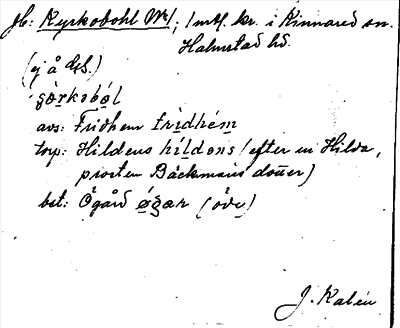 Jb: Kyrkobohl 1/4 /mtl. kr. i Kinnared sn.
Halmstad hd.
(ej å dsb.)
şærkoból
avs: Fridhem frìdhém
torp: Hildens hìldəns (efter en Hilda,
prosten Bäckmans dotter)
bst: Ögård ǿgar (öde)
J. Kalén